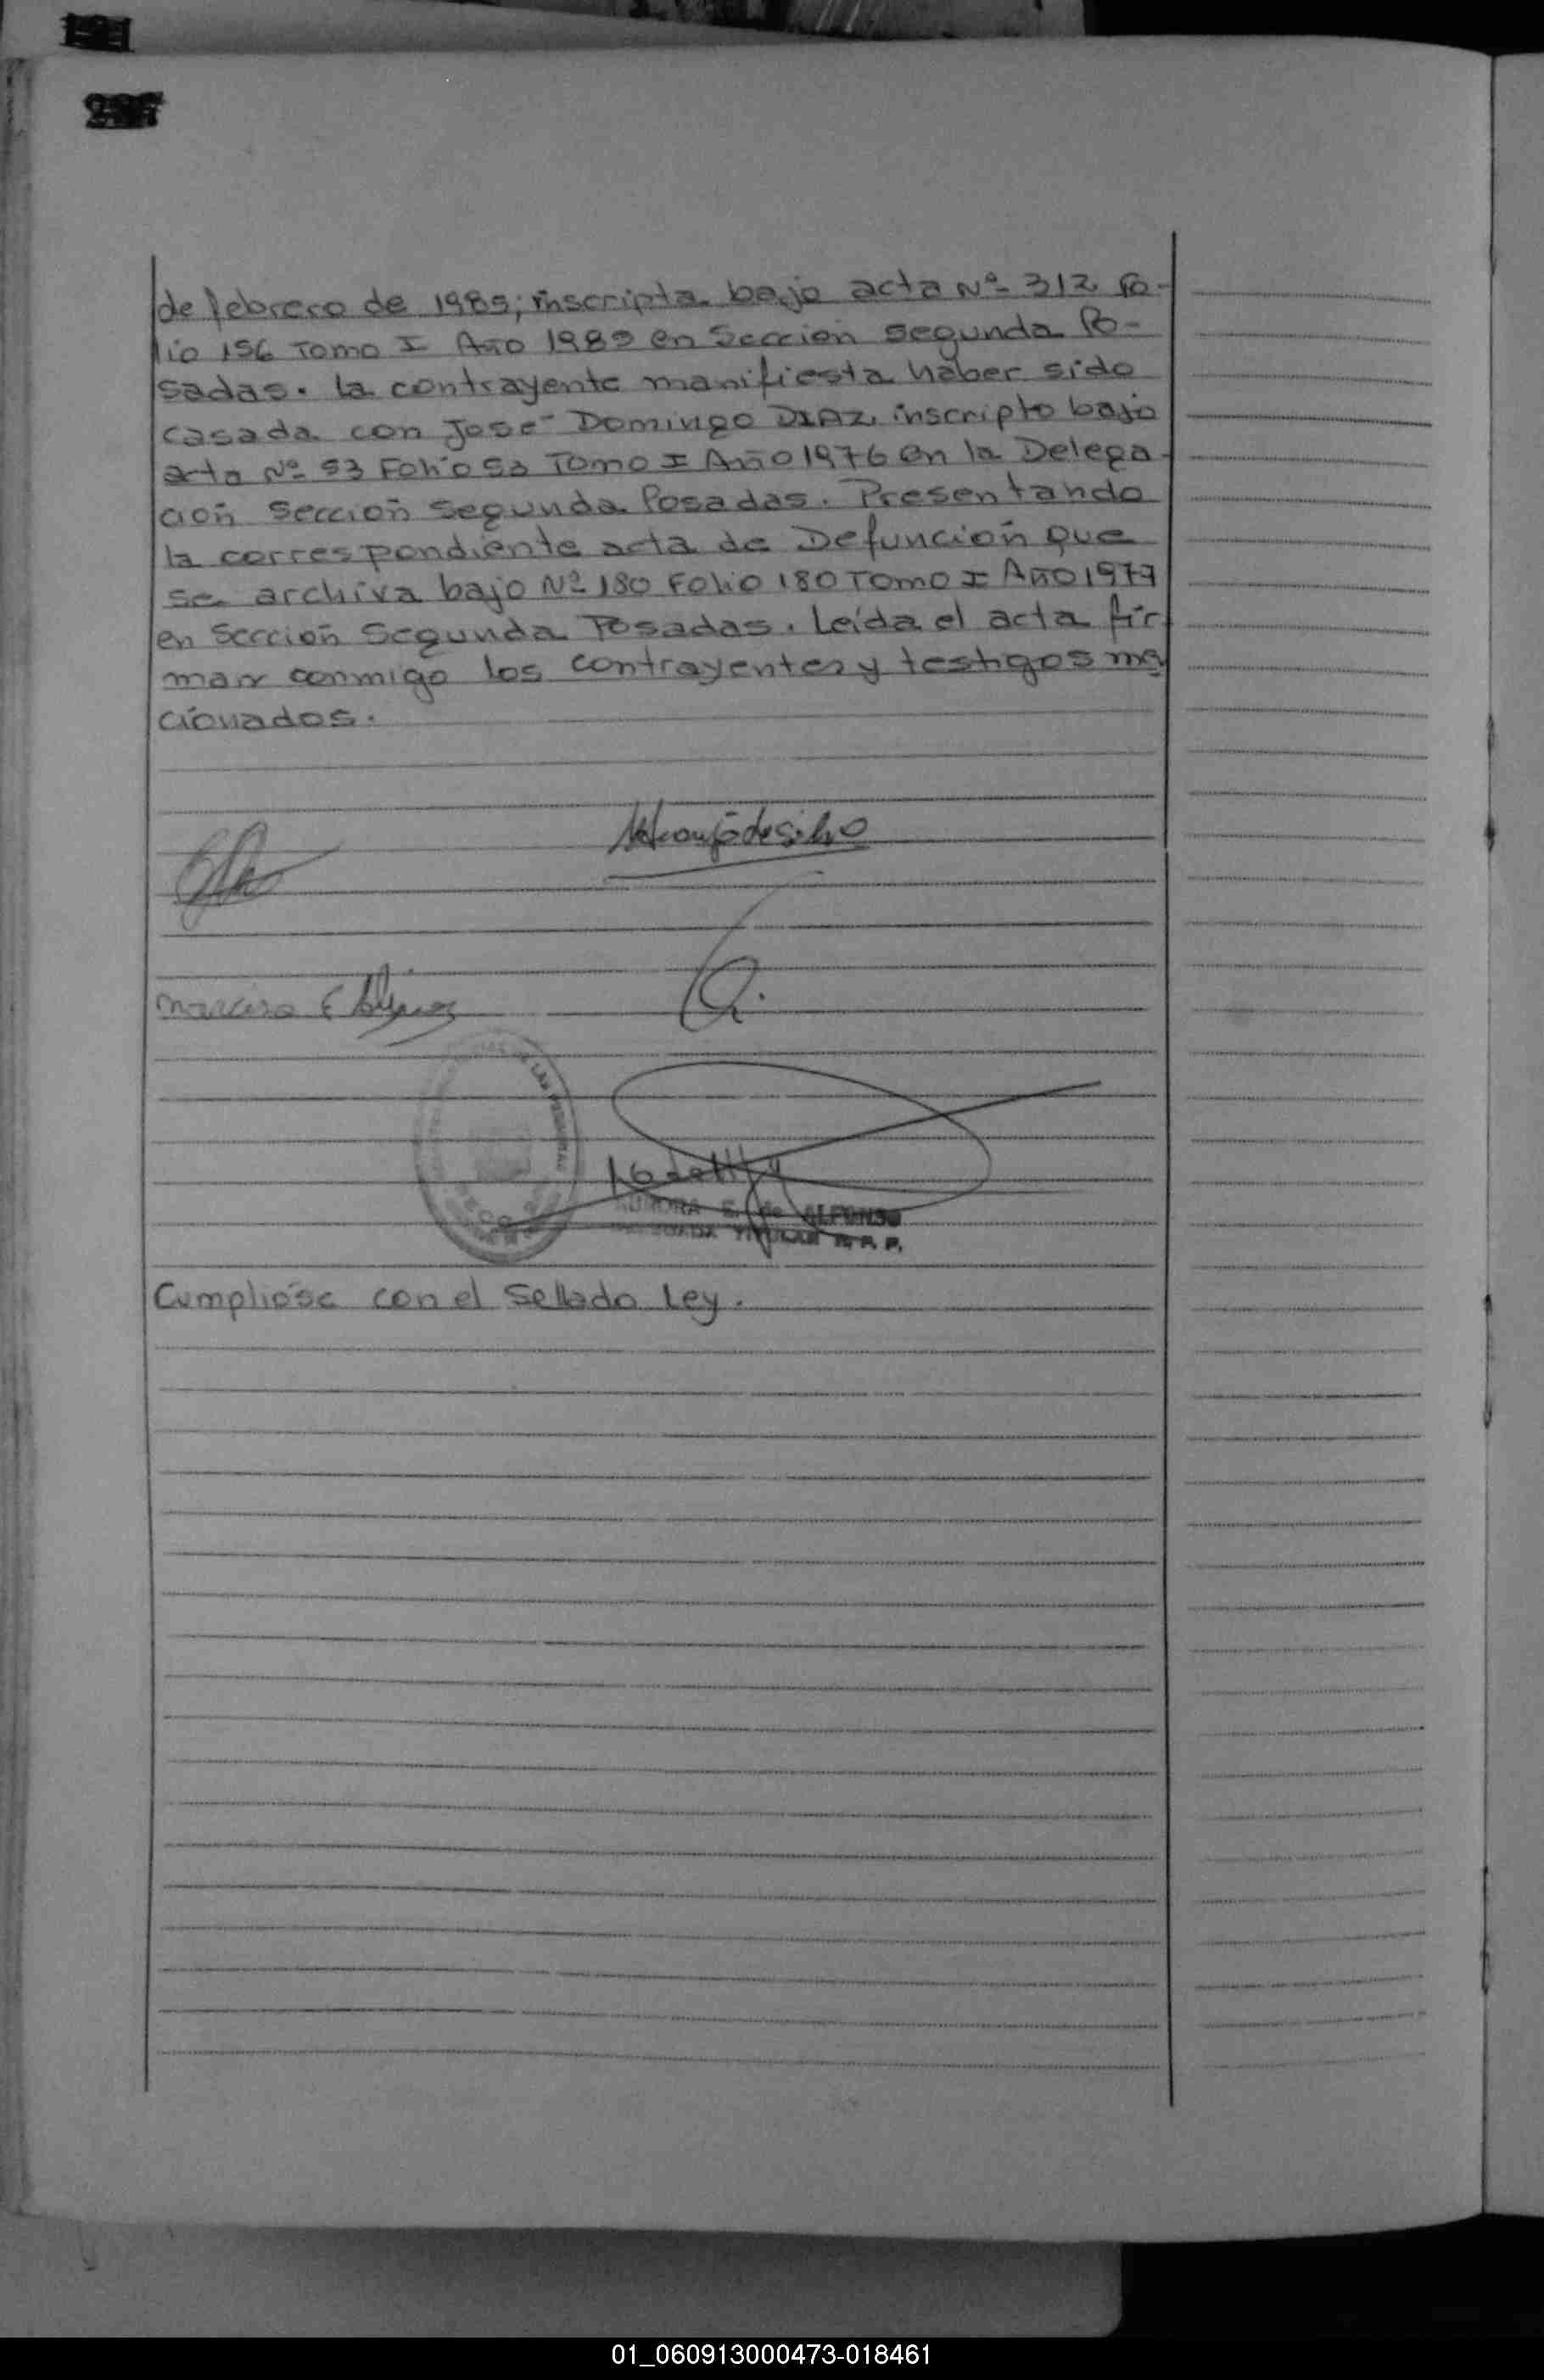 de febrero de 1985; inscripta bajo acta Nº 312 Fo-
lio 156 Tomo I Año 1985 en Seccion segunda Po-
sadas. la contrayente manifiesta haber sido
casada con José Domingo DIAZ, inscripto bajo
acta Nº 53 Folio 53 Tomo I Año 1976 en la Delega-
ción Sección segunda Posadas. Presentando
la correspondiente acta de Defunción que
se archiva bajo Nº 180 Folio 180 Tomo I Año 1977
en Sección Segunda Posadas. Leída el acta fir
man conmigo los contrayentes y testigos men
cionados.
AURORA E. de ALFONSO
Cumplióse con el Sellado Ley.
01_060913000473-018461